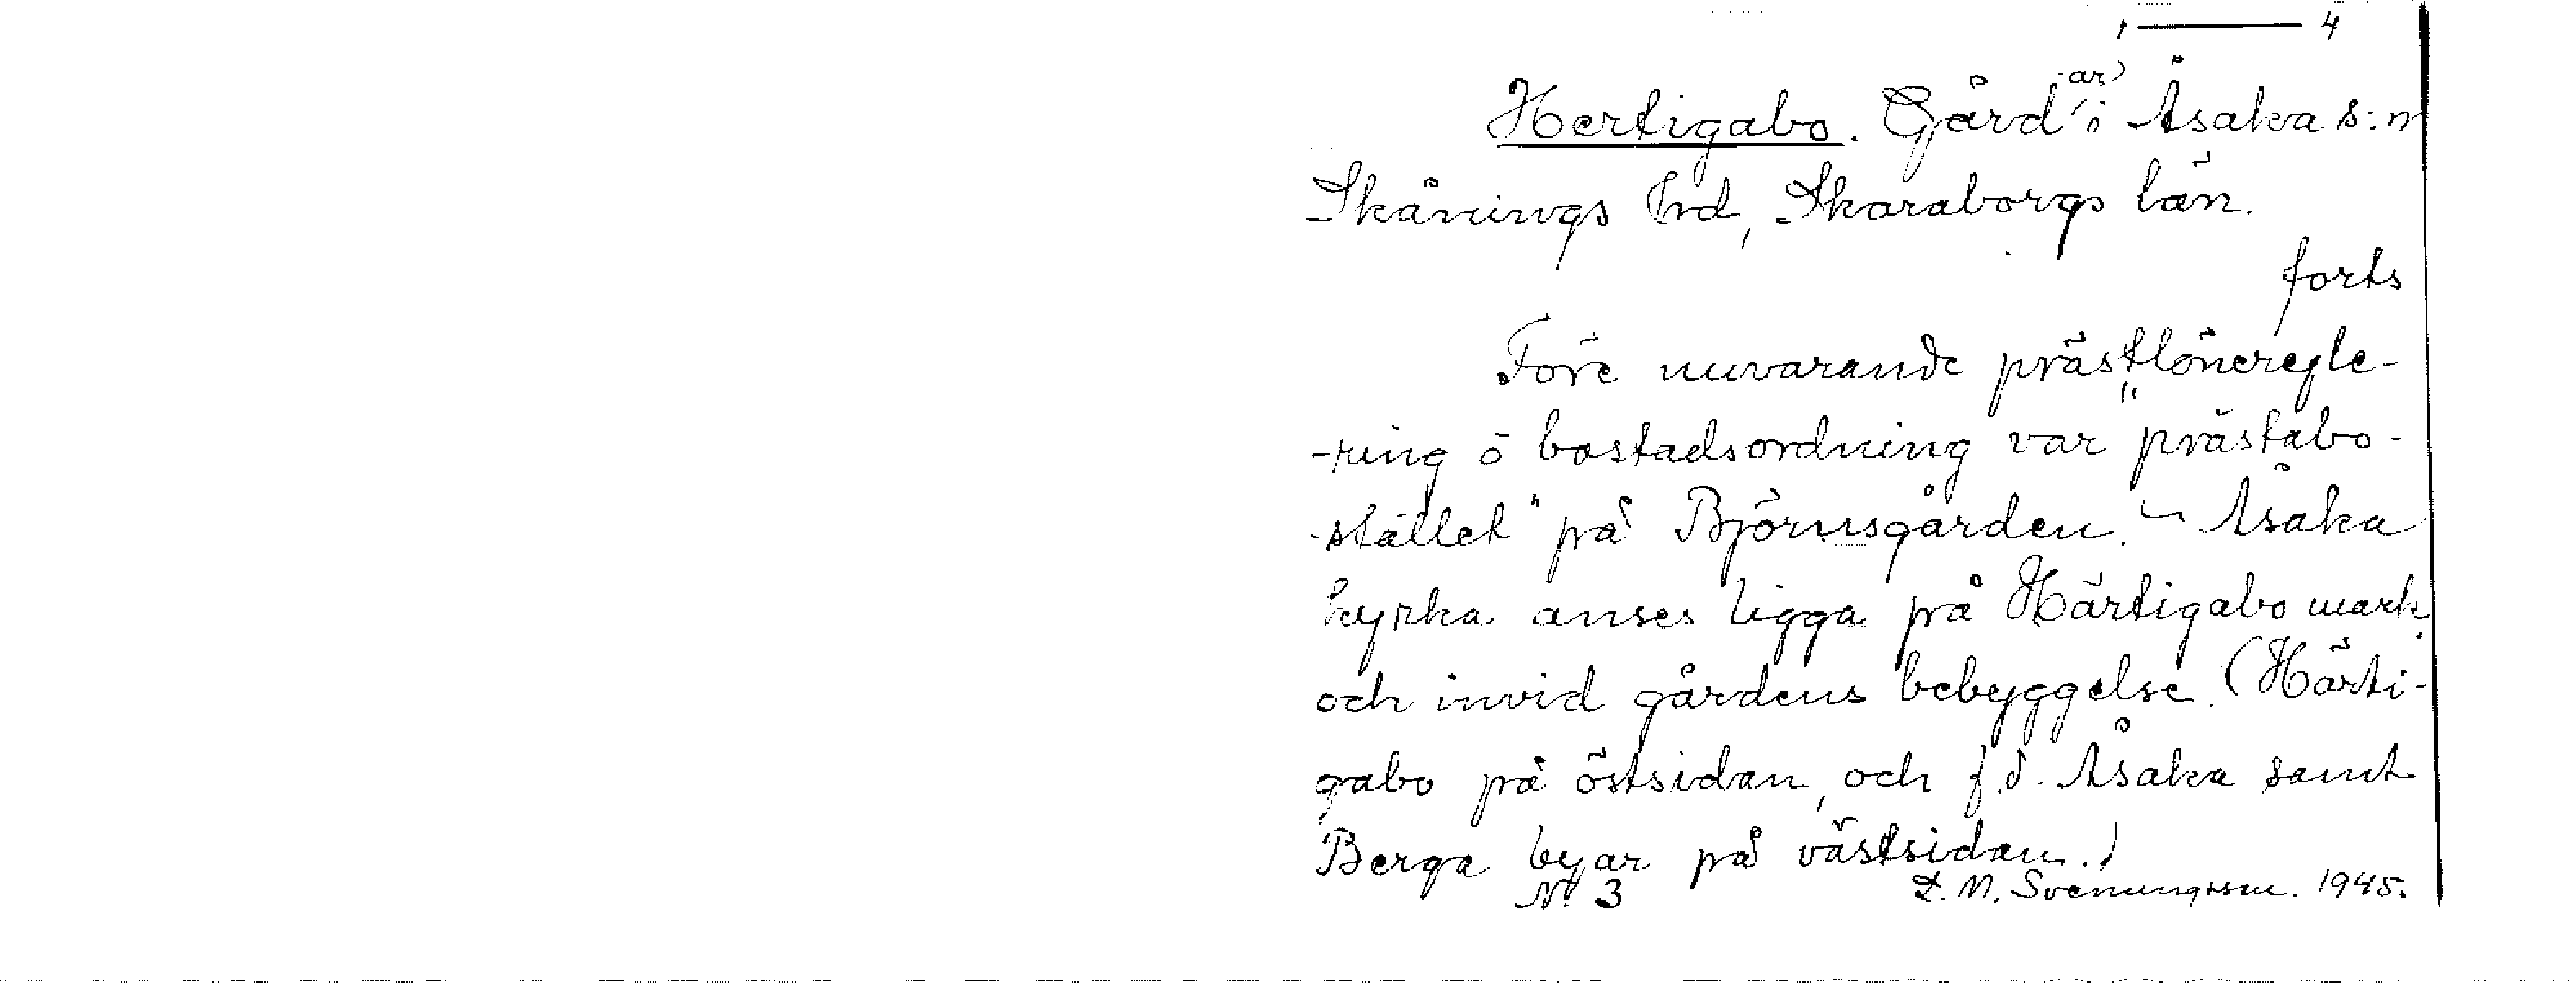 1 — 4
Hertigabo. Gård(ar) i Åsaka s:n
Skånings hrd, Skaraborgs län.
forts
Före nuvarande prästlöneregle-
-ring o bostadsordning var "prästabo-
-stället" på Björnsgården. – Åsaka
kyrka anses ligga på Härtigabo mark
och invid gårdens bebyggelse. (Härti-
gabo på östsidan, och f.d. Åsaka samt
Berga byar på västsidan.)
No 3 L. M. Svenungsson. 1945.